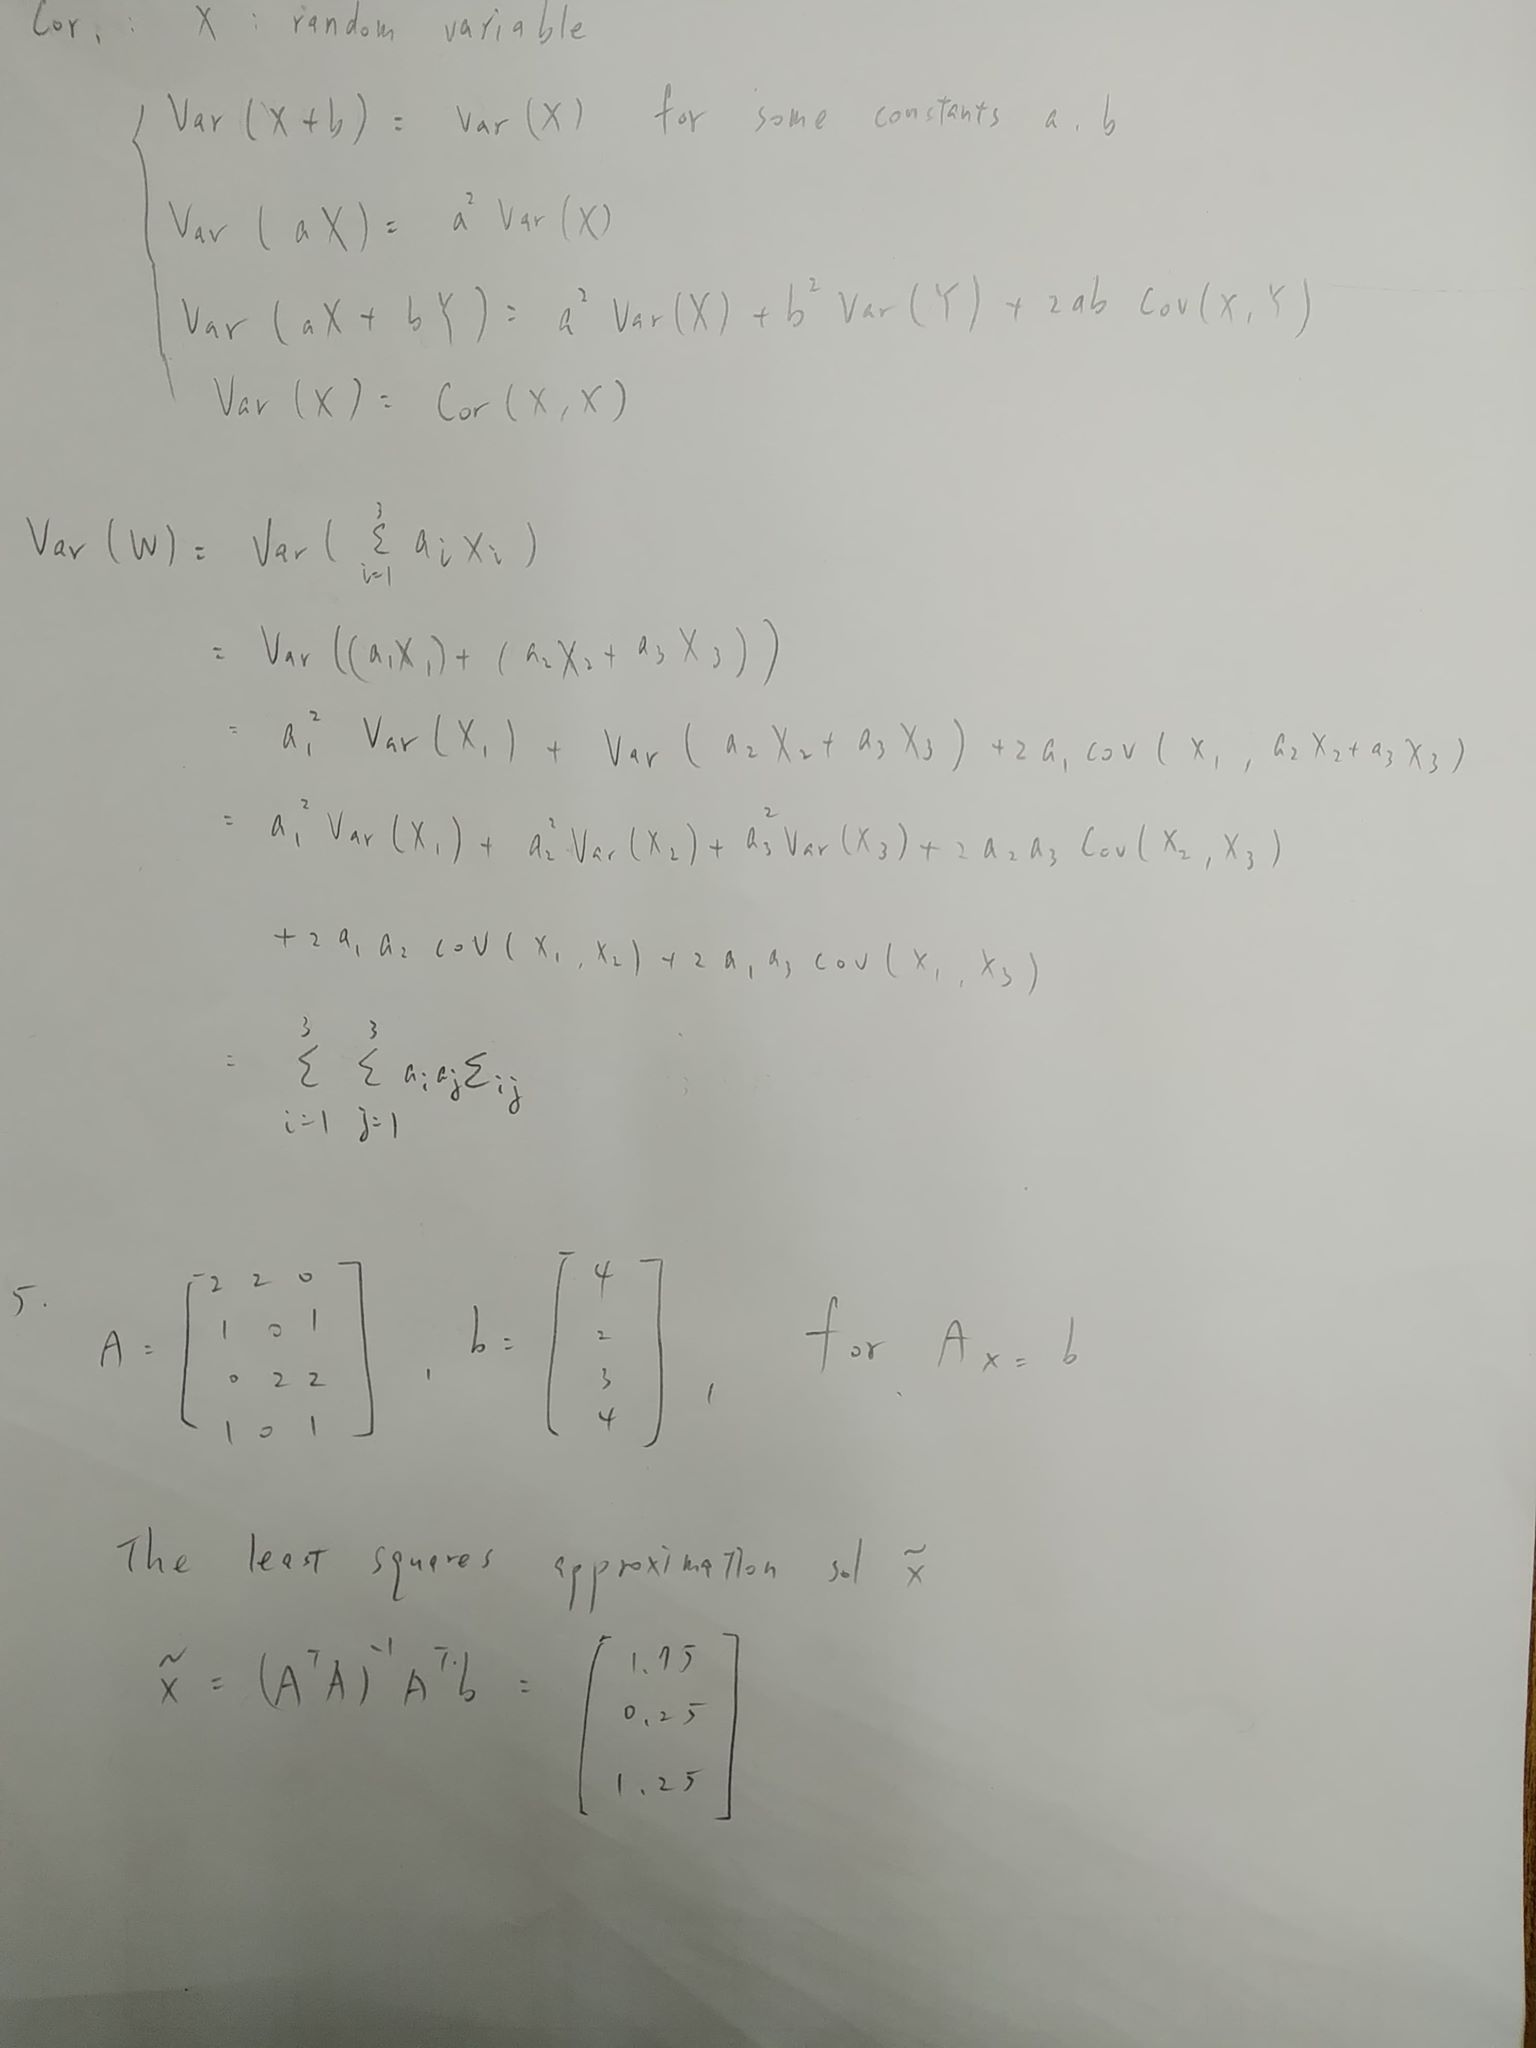 Cor. : X : random variable
Var (X + b) = Var (X) for some constants a, b
Var (aX) = a² Var (X)
Var (aX + bY) = a² Var (X) + b² Var (Y) + 2ab Cov (X, Y)
Var (X) = Cor (X, X)
Var (W) = Var ( Σ_{i=1}^{3} aᵢ Xᵢ )
= Var ((a₁X₁) + (a₂X₂ + a₃X₃))
= a₁² Var (X₁) + Var (a₂X₂ + a₃X₃) + 2a₁ cov (X₁, a₂X₂ + a₃X₃)
= a₁² Var (X₁) + a₂² Var (X₂) + a₃² Var (X₃) + 2a₂a₃ Cov (X₂, X₃)
+ 2a₁a₂ cov (X₁, X₂) + 2a₁a₃ cov (X₁, X₃)
= Σ_{i=1}^{3} Σ_{j=1}^{3} aᵢaⱼ Σᵢⱼ
5. A = [2 2 0; 1 0 1; 0 2 2; 1 0 1], b = [4; 2; 3; 4], for Ax = b
The least squares approximation sol x̃
x̃ = (AᵀA)⁻¹ Aᵀb = [1.75; 0.25; 1.25]